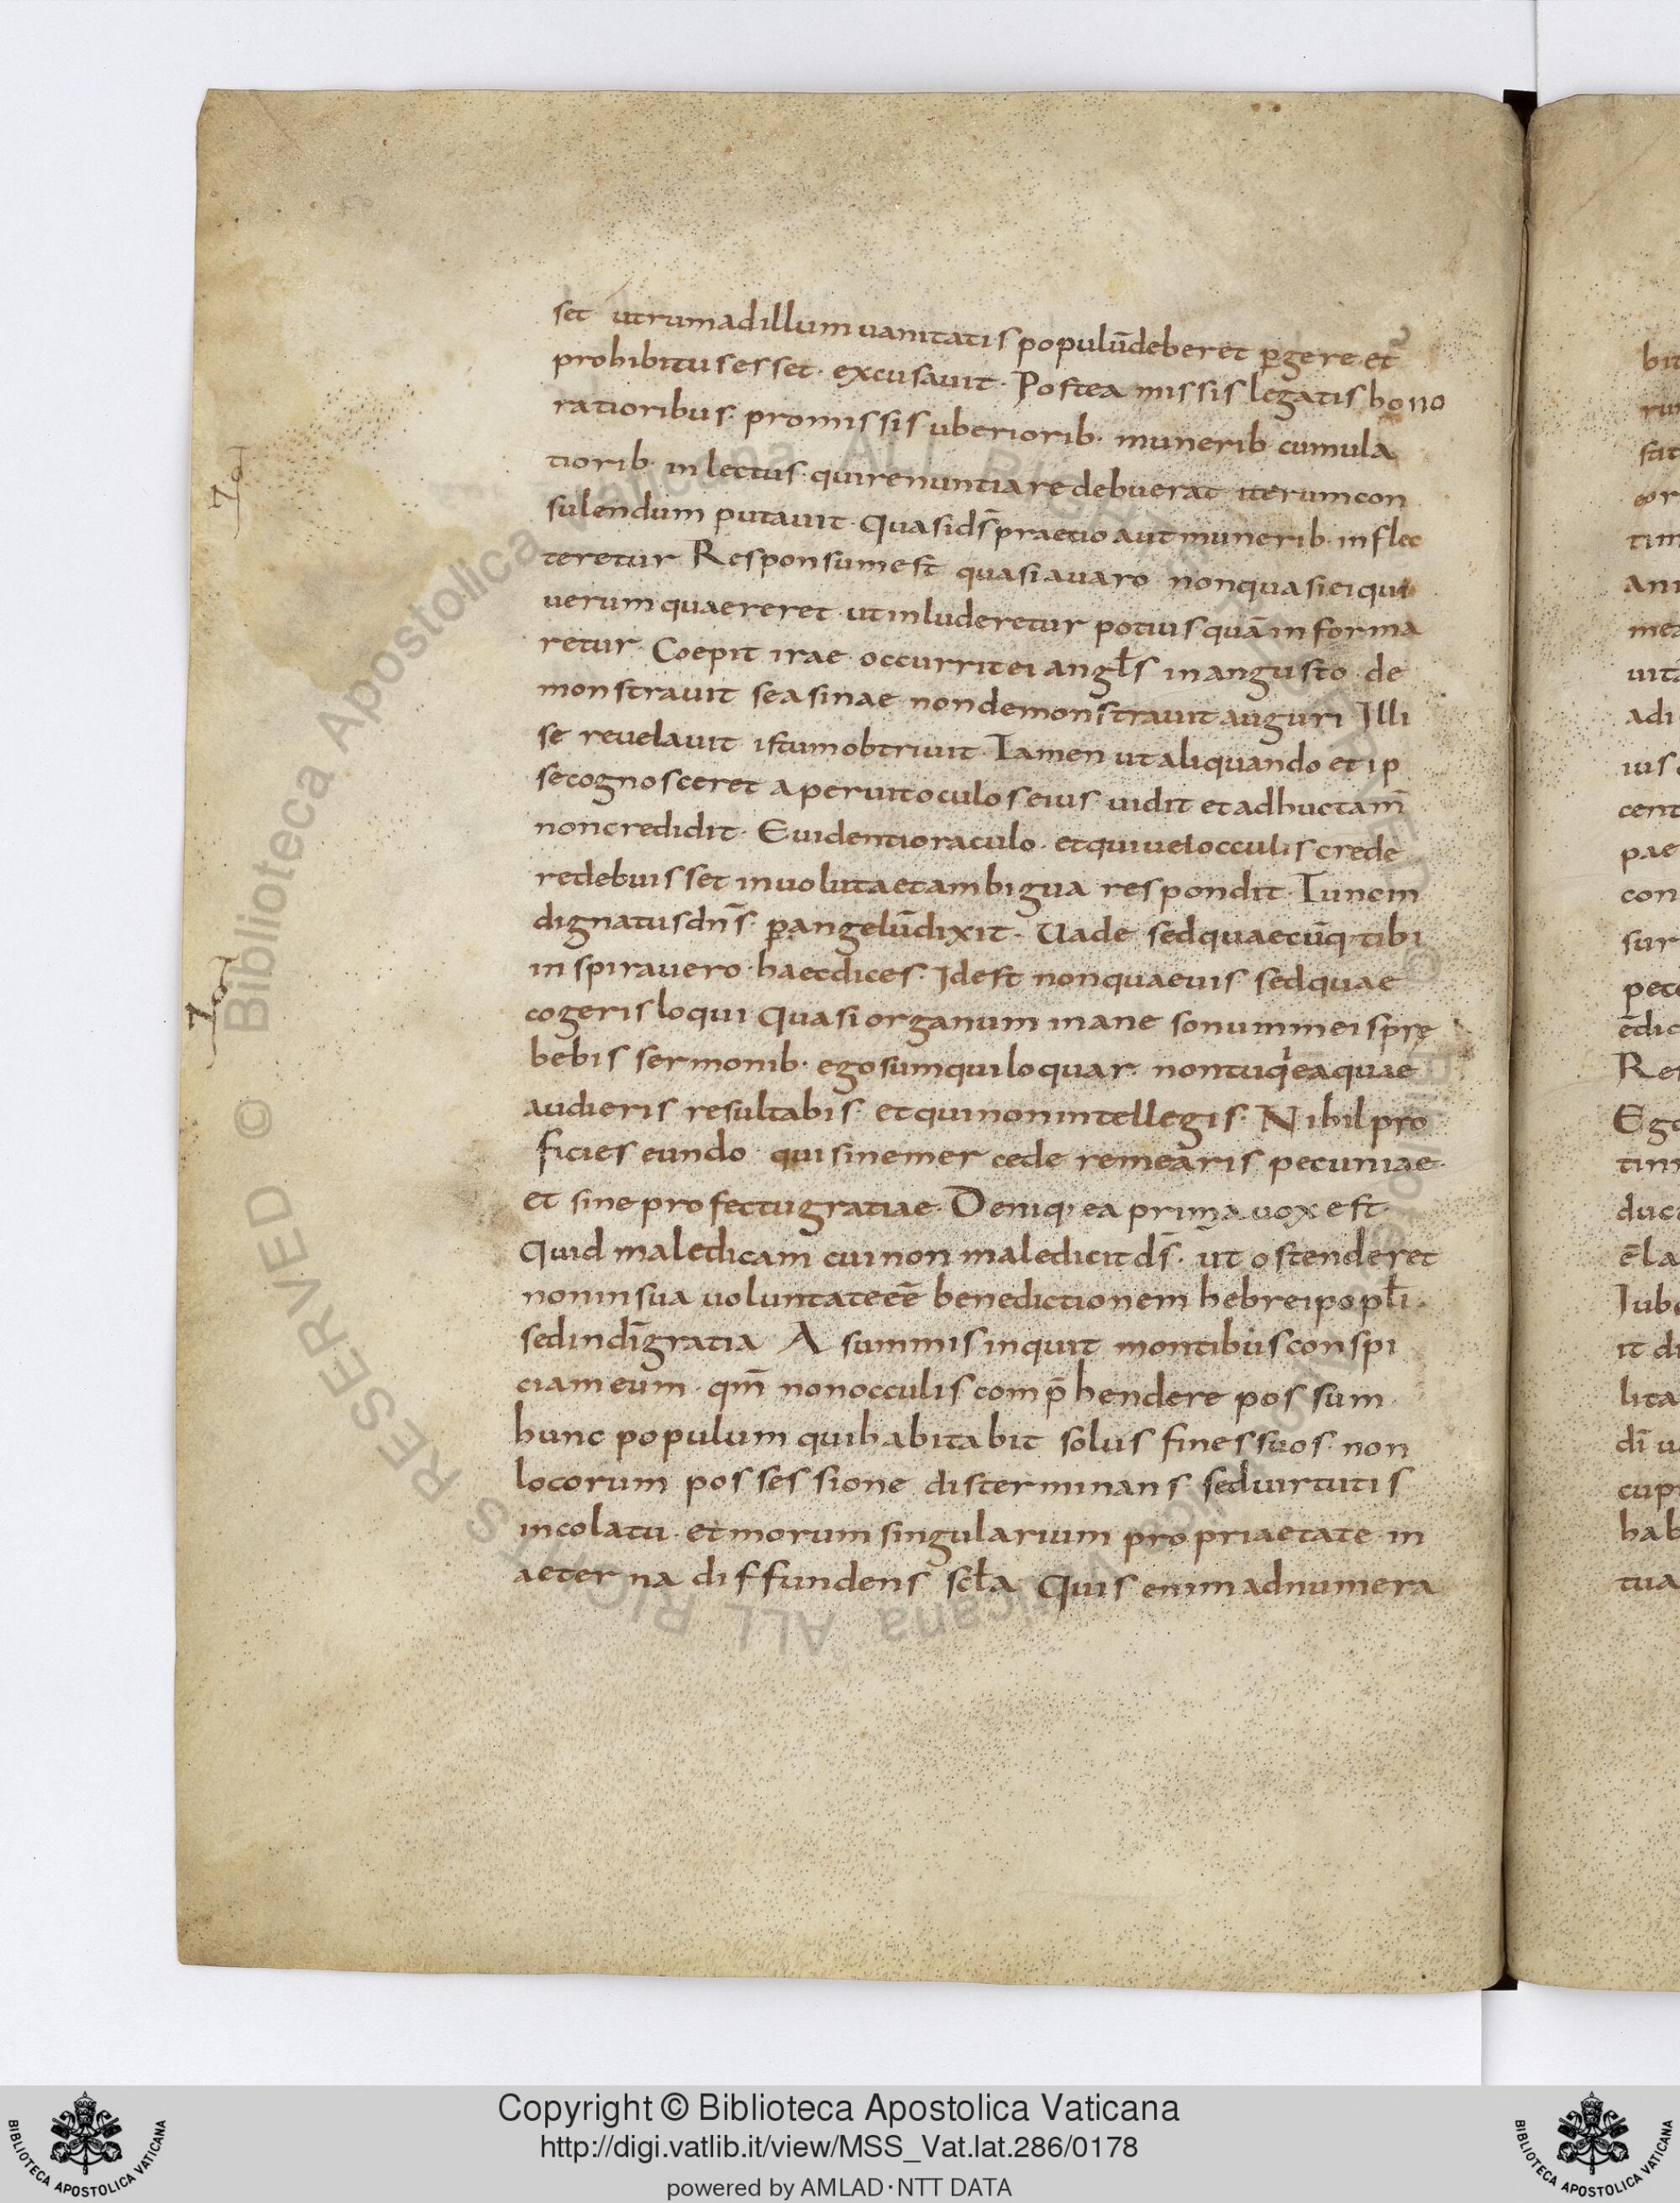 set utrum ad illum uanitatis populū deberet p̱gere et
prohibitus esset · excusauit · Postea missis legatis hono
ratioribus · promissis uberiorib · munerib · cumula
tiorib · inlectus · qui renuntiare debuerat · iterum con
sulendum putauit · quasi ds̄ praetio aut munerib · inflec
teretur Responsum est quasi auaro non quasi ei qui
uerum quaereret · ut inluderetur potius quā informa
retur · Coepit irae · occurrit ei angl̄s in angusto de
monstrauit se asinae non demonstrauit auguri Illi
se reuelauit istum obtriuit · Tamen ut aliquando et ip
se cognosceret aperuit oculos eius · uidit et adhuc tam̄
non credidit · Euidenti oraculo · et qui uel occulis crede
re debuisset inuoluta et ambigua respondit · Tunc in
dignatus dn̄s · p̱ angelū dixit · Uade sed quaecūq; tibi
inspirauero · haec dices · Id est non quae uis sed quae
cogeris loqui quasi organum inane sonum meis pre
bebis sermonib · ego sum qui loquar · non tu q̄ ea quae
audieris resultabis · et qui non intellegis · Nihil pro
ficies eundo qui sine mercede remearis pecuniae ·
et sine profectu gratiae · Deniq; ea prima uox est ·
Quid maledicam cui non maledicit ds̄ · ut ostenderet
non in sua uoluntate eē benedictionem hebrei popl̄i ·
sed in dī gratia A summis inquit montibus conspi
ciam eum · qm̄ non occulis comp̄hendere possum ·
hunc populum qui habitabit solus fines suos · non
locorum possessione disterminans sed uirtutis
incolatu · et morum singularium propriaetate in
aeterna diffundens scl̄a Quis enim adnumera
bit
Copyright © Biblioteca Apostolica Vaticana
http://digi.vatlib.it/view/MSS_Vat.lat.286/0178
powered by AMLAD·NTT DATA
BIBLIOTECA APOSTOLICA VATICANA
BIBLIOTECA APOSTOLICA VATICANA